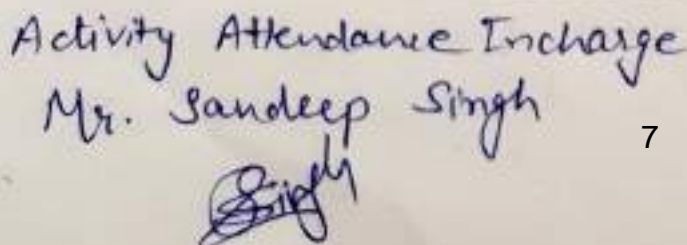 Activity Attendance Incharge
Mr. Sandeep Singh
7
Singh